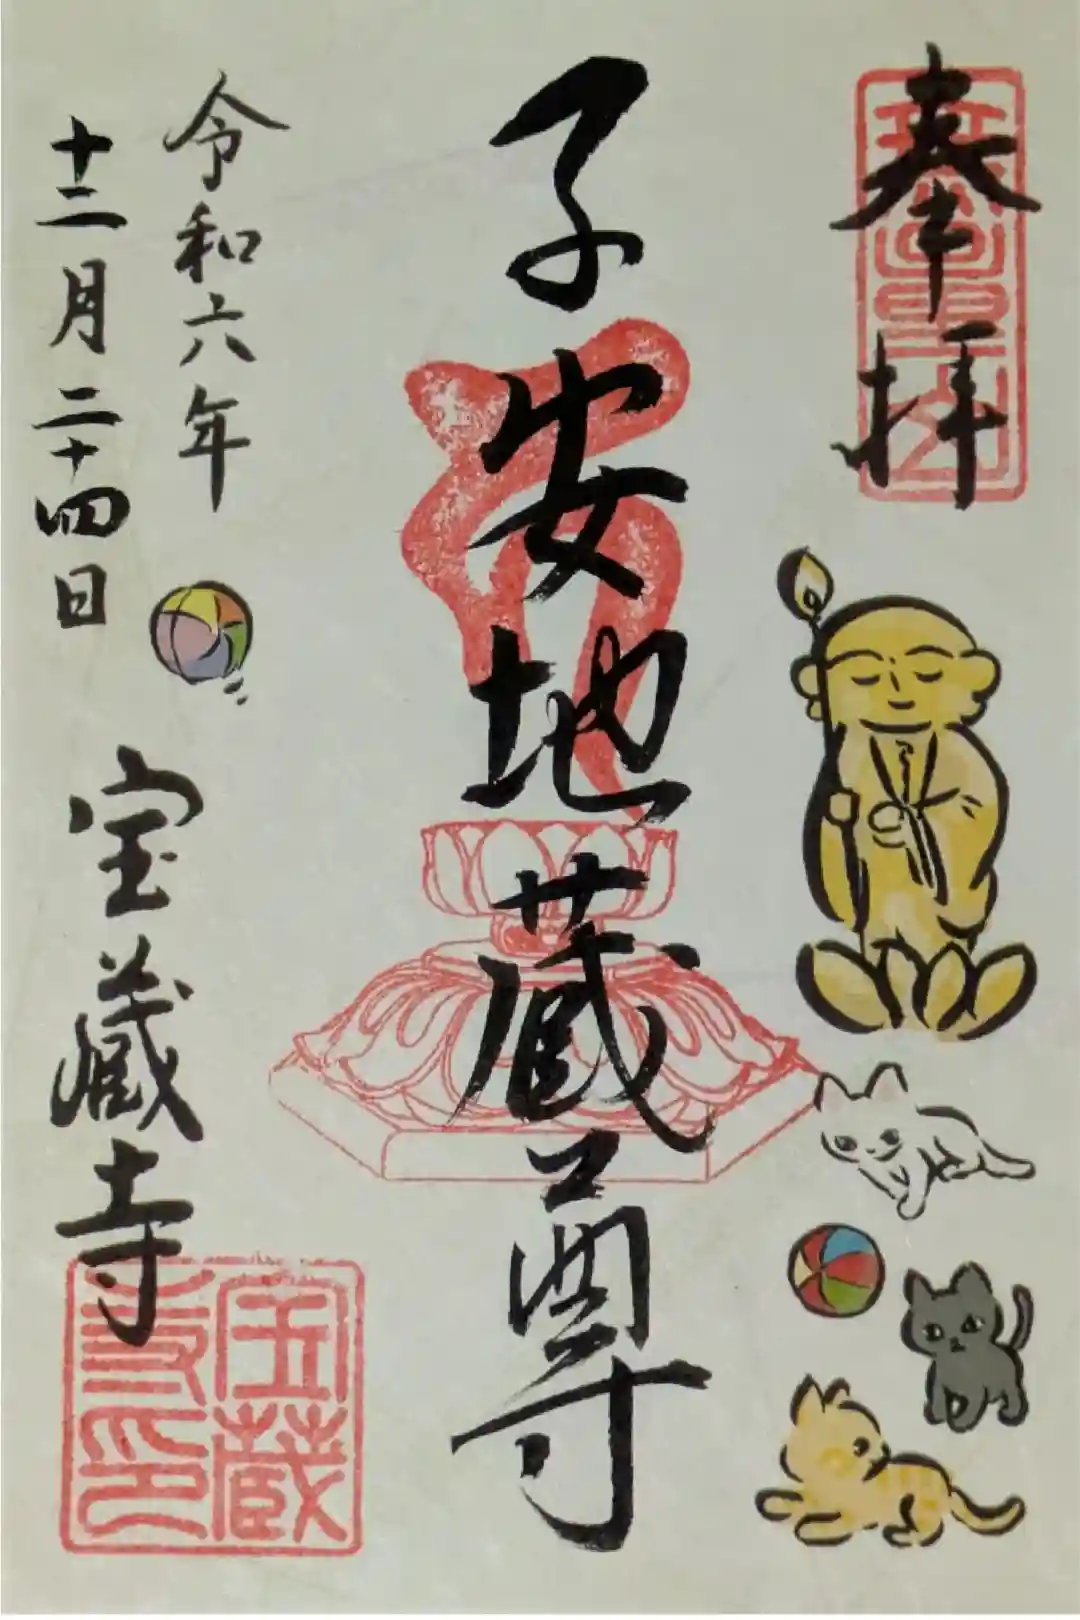 奉拝
子安地蔵尊
令和六年
十二月二十四日
宝蔵寺
宝蔵
寺印